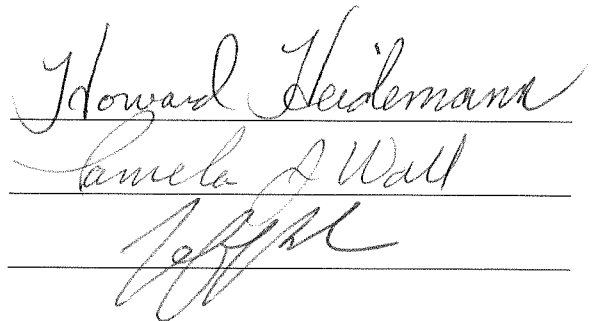 Howard Heidemann
Pamela J Wall